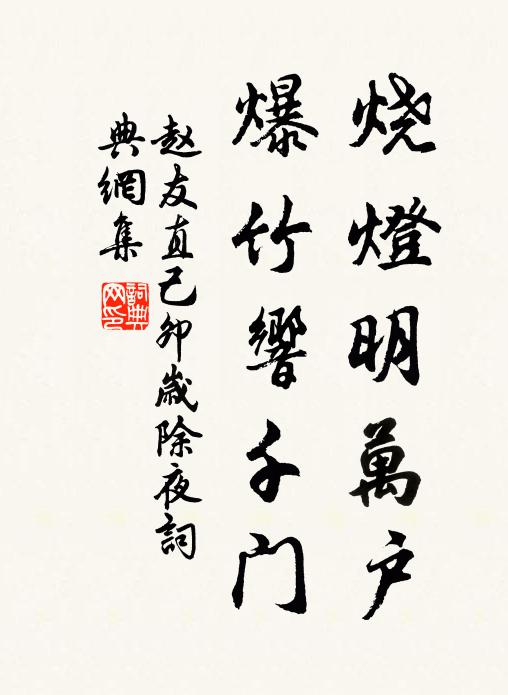 烧燈明萬户
爆竹響千门
赵友直己卯歲除夜詞
典網集
詞典
网印